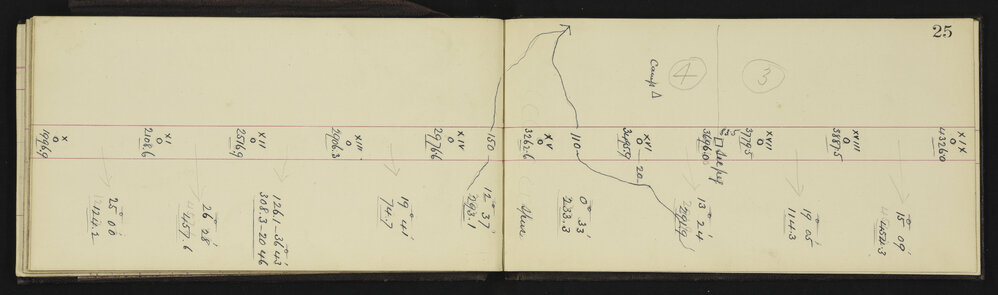 25
X
1996.9
XI
2108.6
XII
2516.9
XIII
2906.3
XIV
2976.6
150
XV
3262.6
110
XVI
3495.9
20
3696.0
See peg
XVII
3779.5
XVIII
3887.5
XIX
4326.0
Camp Δ
4
3
25° 00'
124.2
26° 28'
457.6
126.1 - 36° 43'
308.3 - 20 46
19° 41'
74.7
12° 37'
293.1
Spur
0° 33'
233.3
13° 24'
19° 05'
114.3
15° 09'